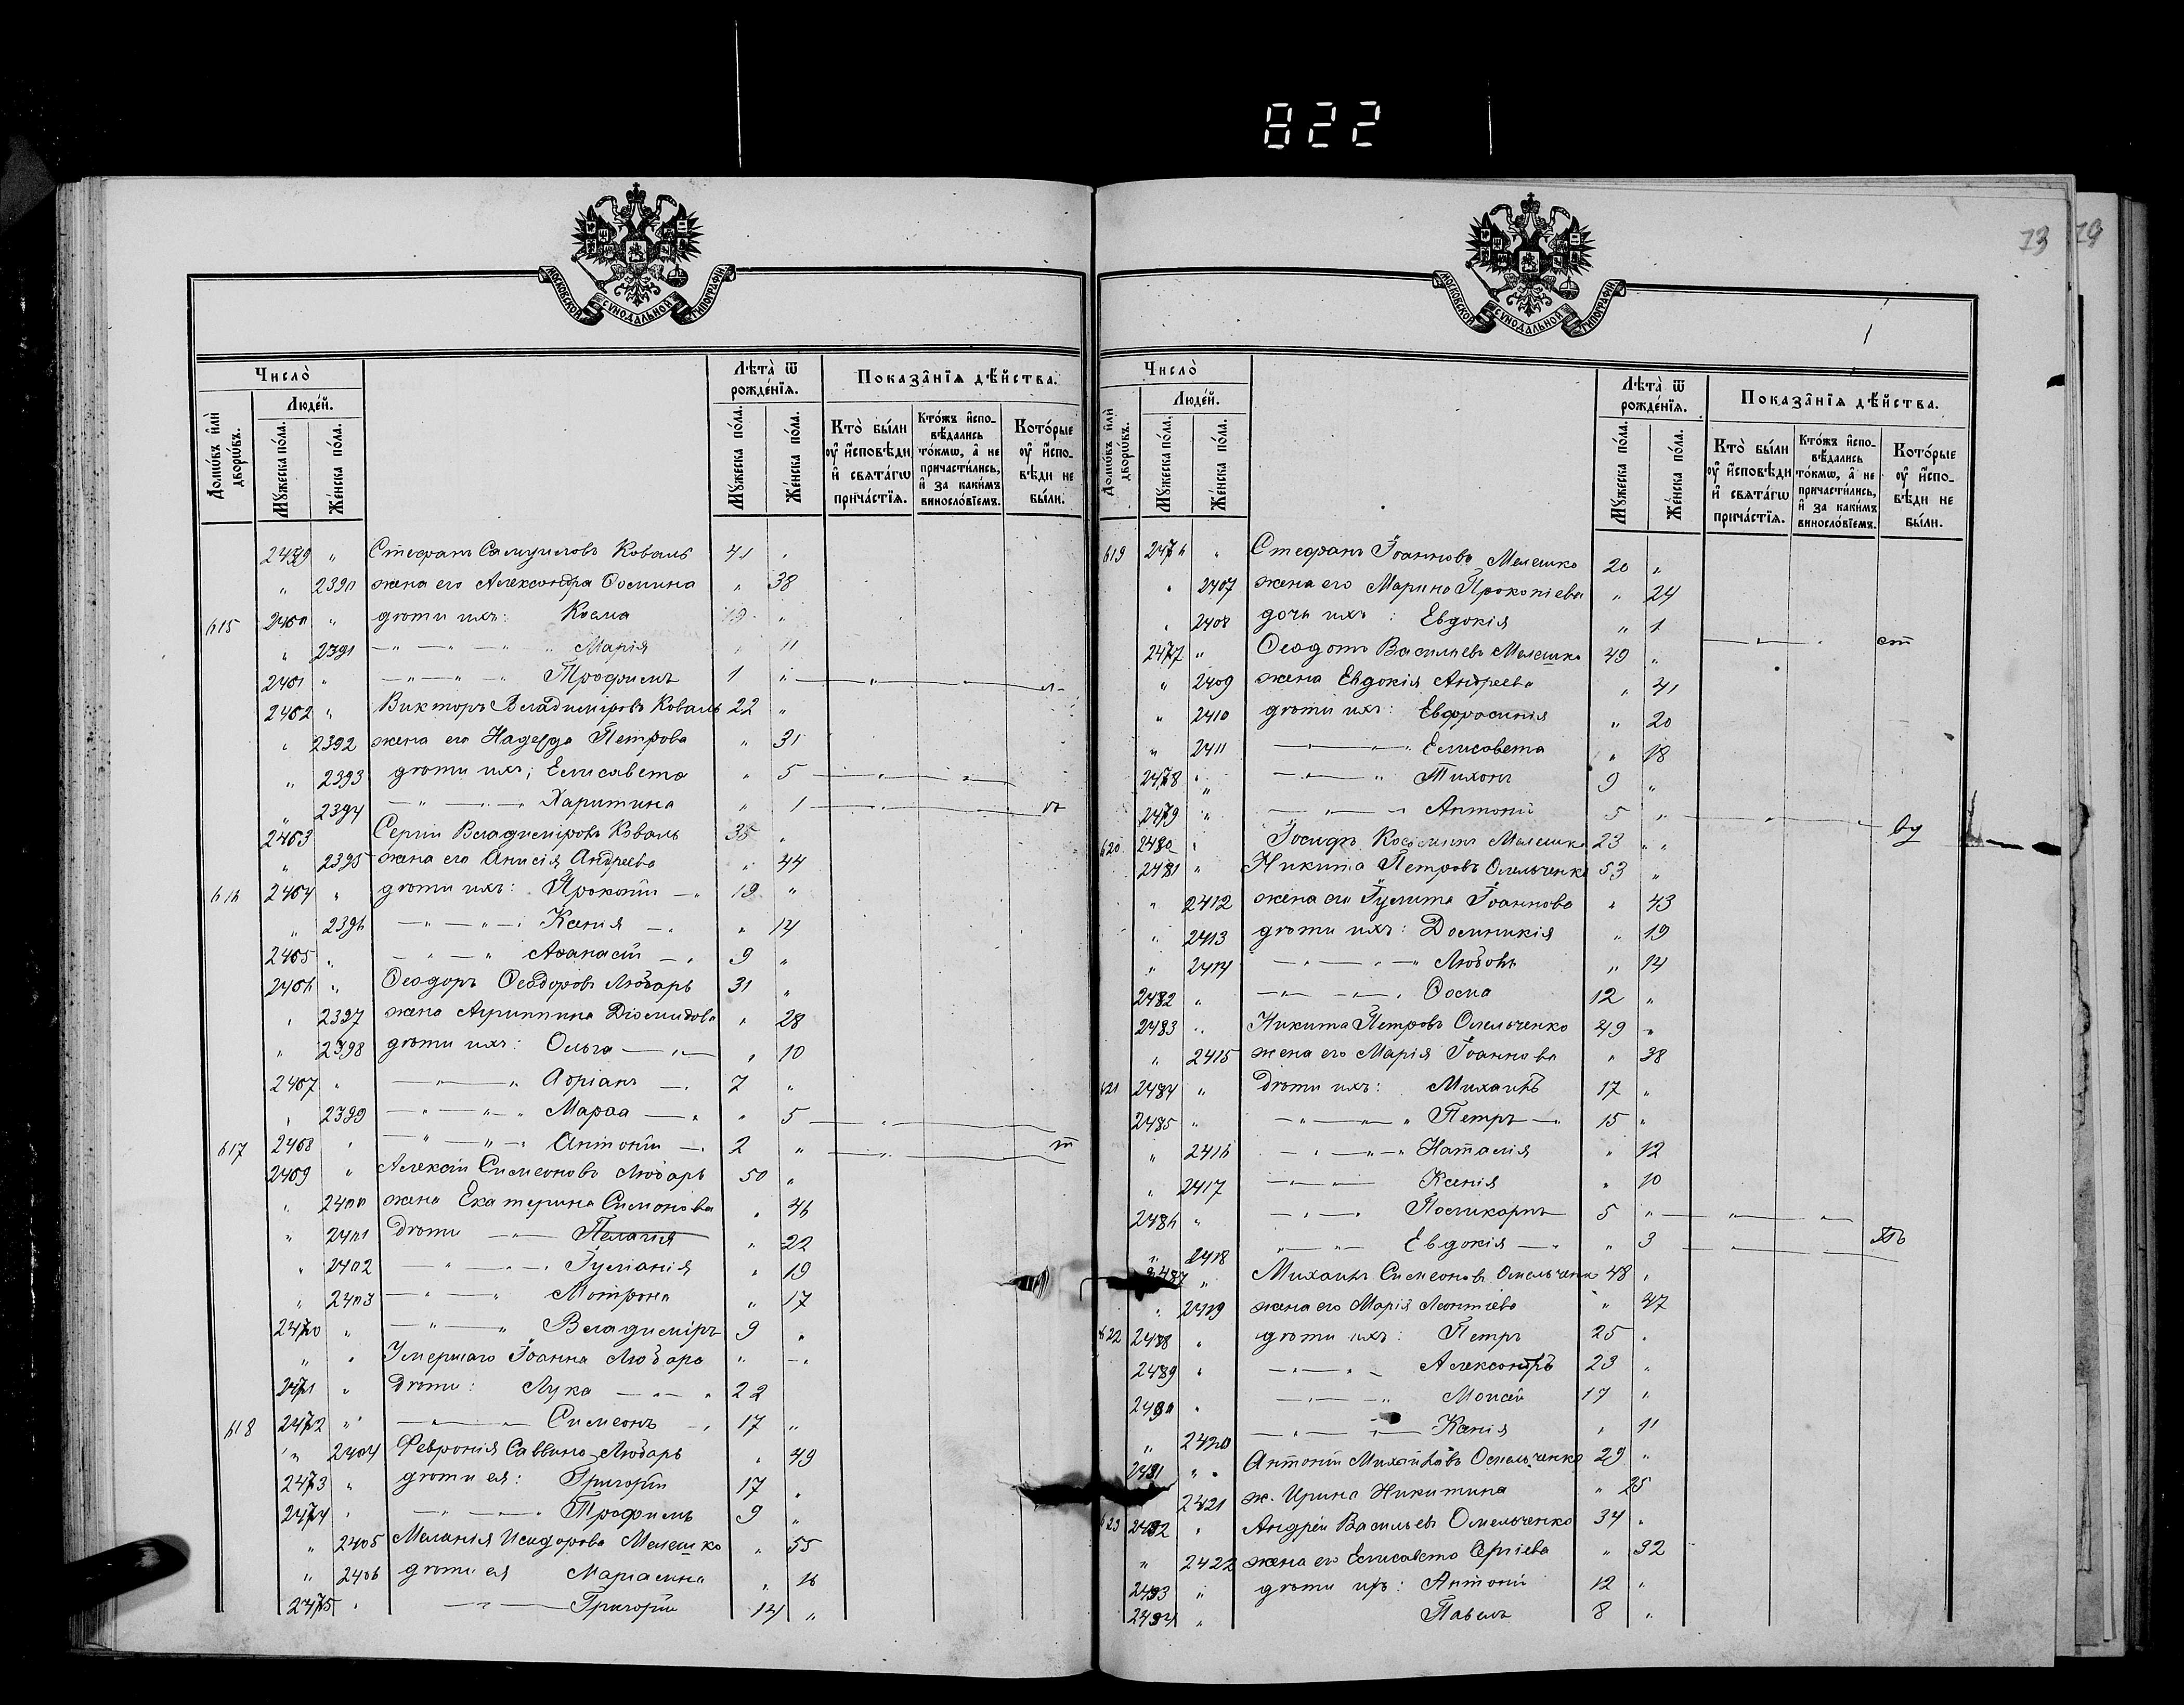 822
73 19
МОСКОВСКОЙ СѴНОДАЛЬНОЙ ТИПОГРАФІИ
Число̀
Людéй.
Домѡ́въ и҆лѝ дворѡ́въ.
Мꙋ́жеска по́ла.
Же́нска по́ла.
Лѣта̀ ѿ рожде́нїѧ.
Мꙋ́жеска по́ла.
Же́нска по́ла.
Показа̑нїѧ дѣ́йства.
Кто̀ бы́ли ᲂу҆ и҆сповѣ́ди и҆ свѧта́гѡ прича́стїѧ.
Кто́жъ и҆спо-вѣ́дались то́кмѡ, а҆ не причасти́лись, и҆ за каки́мъ виносло́вїемъ.
Кото́рые ᲂу҆ и҆спо-вѣ́ди не бы́ли.
2459 " Стефанъ Самуиловъ Коваль 41 "
" 2390 жена его Александра Ѳомина " 38
615 2460 " дѣти ихъ: Косма 19 "
" 2391 — " — " — " " Марія " 11
2461 " — " — " — " Трофимъ 1 "
2462 " Викторъ Владиміровъ Коваль 22 "
" 2392 жена его Надежда Петрова " 31
" 2393 дѣти ихъ; Елисавета " 5
" 2394 — " — " — Харитина " 1
2463 Сергій Владиміровъ Коваль 35 "
" 2395 жена его Анисія Андреева " 44
616 2464 " дѣти ихъ: Прокопій — " 19 "
" 2396 — " — " — Ксенія — " " 14
2465 " — " — " Аѳанасій — " 9 "
2466 " Ѳеодоръ Ѳеодоровъ Любарь 31 "
" 2397 жена Агриппина Діомидова " 28
" 2398 дѣти ихъ: Ольга — " — " 10
2467 " — " — " Адріанъ — " 7 "
" 2399 — " — " — " Марѳа — " " 5
617 2468 " — " — " — Антоній — " 2 "
2469 " Алексій Симеоновъ Любарь 50 "
" 2400 жена Екатерина Симонова " 46
" 2401 Дѣти — " — Пелагія " 22
" 2402 — " — " — " Іуліанія " 19
" 2403 — " — " Мотрона " 17
2470 " — " — " Владиміръ 9 "
" " Умершаго Іоанна Любаря " — "
2471 " Дѣти: Лука — " — " 22
618 2472 " — " — " — Симеонъ — " 17 "
" 2404 Февронія Саввина Любарь " 49
2473 " дѣти ея: Григорій 17 "
2474 " — " — " — " Трофимъ 9 "
" 2405 Меланія Исидорова Мелешко " 55
" 2406 дѣти ея Маріамна " 16
2475 " — " — Григорій 14 "
МОСКОВСКОЙ СѴНОДАЛЬНОЙ ТИПОГРАФІИ
Число̀
Людéй.
Домѡ́въ и҆лѝ дворѡ́въ.
Мꙋ́жеска по́ла.
Же́нска по́ла.
Лѣта̀ ѿ рожде́нїѧ.
Мꙋ́жеска по́ла.
Же́нска по́ла.
Показа̑нїѧ дѣ́йства.
Кто̀ бы́ли ᲂу҆ и҆сповѣ́ди и҆ свѧта́гѡ прича́стїѧ.
Кто́жъ и҆спо-вѣ́дались то́кмѡ, а҆ не причасти́лись, и҆ за каки́мъ виносло́вїемъ.
Кото́рые ᲂу҆ и҆спо-вѣ́ди не бы́ли.
619 2476 " Стефанъ Іоанновъ Мелешко 20 "
" 2407 жена его Марина Прокопіева " 24
" 2408 дочь ихъ: Евдокія " 1
2477 " Ѳеодотъ Васильевъ Мелешко 49 "
" 2409 жена Евдокія Андреева " 41
" 2410 дѣти ихъ: Евфросинія " 20
" 2411 — " — " Елисавета " 18
2478 " — " — " Тихонъ 9 "
2479 " — " — " Антоній 5 "
620 2480 " Іосифъ Косминъ Мелешко 23 "
2481 " Никита Петровъ Омельченко 53 "
" 2412 жена его Іулита Іоаннова " 43
" 2413 дѣти ихъ: Домникія " 19
" 2414 — " — " — " Любовь " 14
2482 " — " — " — " Ѳома 12 "
2483 " Никита Петровъ Омельченко 49 "
" 2415 жена его Марія Іоаннова " 38
621 2484 " Дѣти ихъ: Михаилъ 17 "
2485 " — " — " — " Петръ — " 15 "
" 2416 — " — " — " Наталія " 12
" 2417 — " — " — Ксенія " 10
2486 " — " — " Поликарпъ 5 "
" 2418 " — " — Евдокія — " " 3
2487 " Михаилъ Симеоновъ Омельченко 48 "
" 2419 жена его Марія Леонтіева " 47
622 2488 " дѣти ихъ: Петръ 25 "
2489 " — " — " — Александръ 23 "
2490 " — " — " Моисей 17 "
" 2420 — " — " — Ксенія " 11
2491 " " Антоній Михайловъ Омельченко 29 "
2421 ж. Ирина Никитина " 25
623 2492 " Андрей Васильевъ Омельченко 34 "
" 2422 жена его Елисавета Сергіева " 32
2493 " дѣти ихъ: Антоній 12 "
2494 " Павелъ 8 "